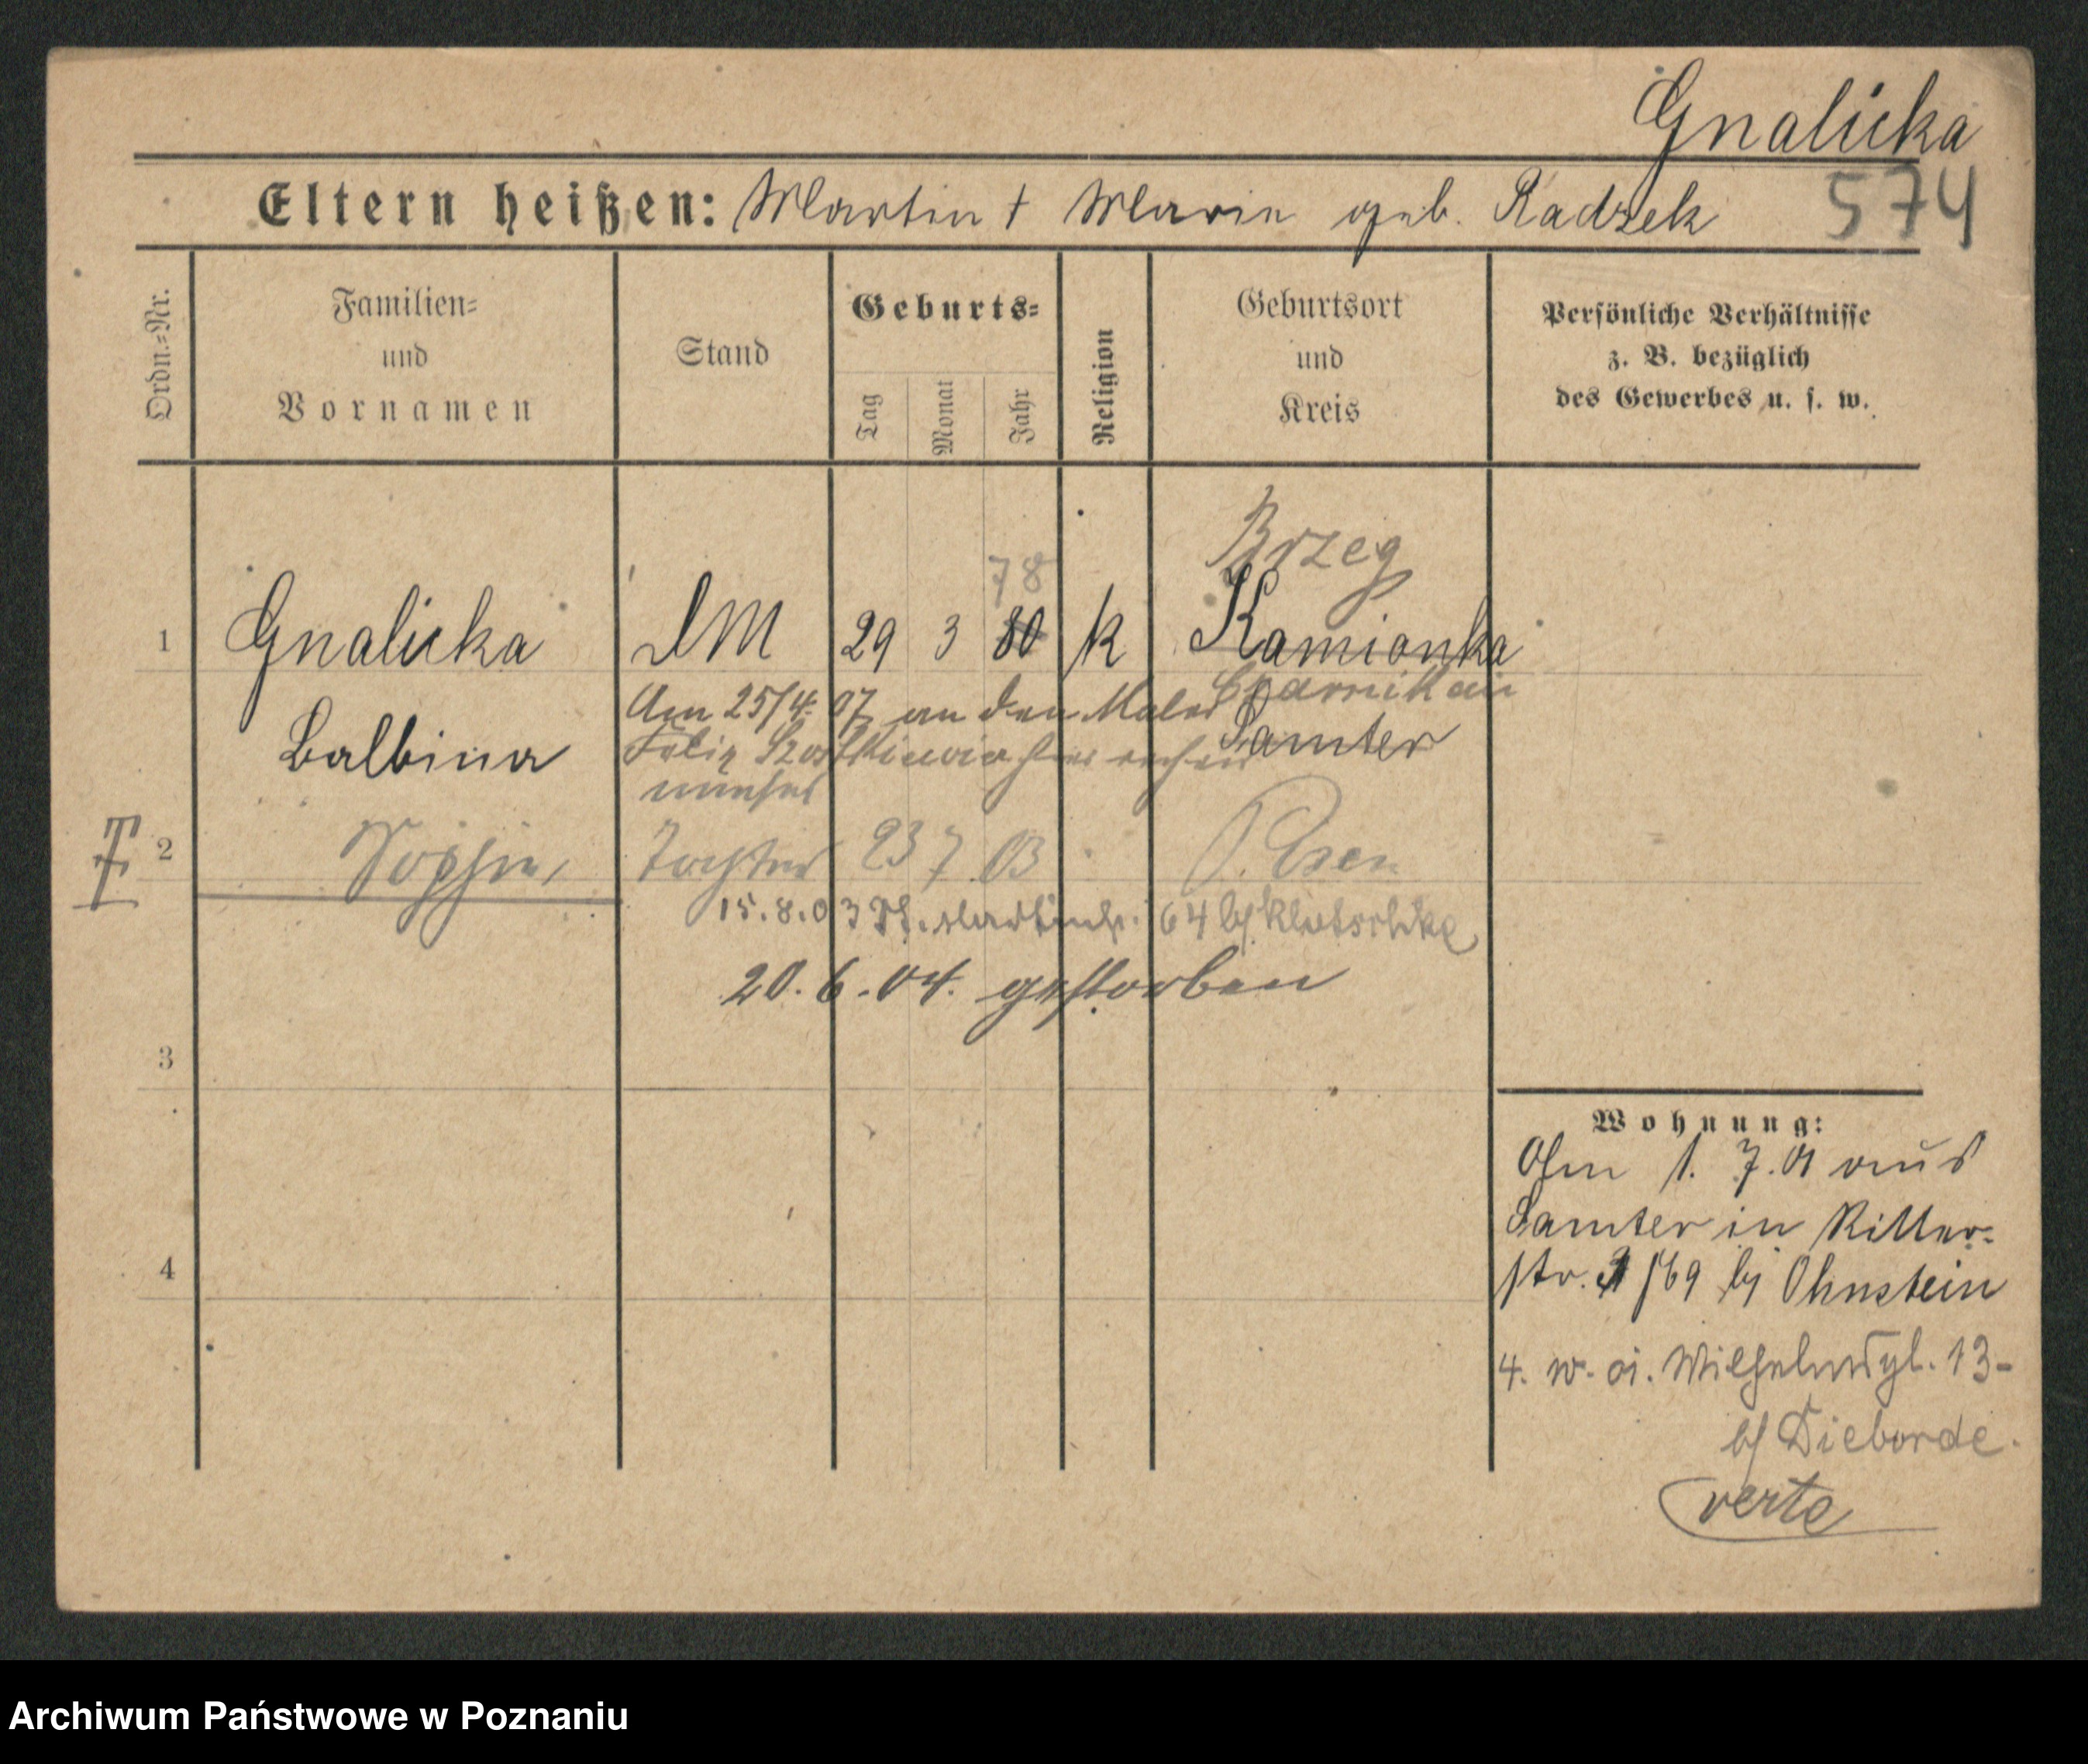 Gnalicka
Eltern heißen: Martin † Marie geb. Radzek 574
Ordn.-Nr.
Familien-
und
Vornamen
Stand
Geburts-
Tag
Monat
Jahr
Religion
Geburtsort
und
Kreis
Persönliche Verhältnisse
z. B. bezüglich
des Gewerbes u. s. w.
Brzeg
78
1 Gnalicka DM 29 3 80 k Kamionka
Czarnikau
Am 25/4. 07 an den Maler
Balbina Samter
Felix
2 Sophie, Tochter 23 7 03 Posen
15.8.03 St. Martinstr. 64 bj Klutschke
20.6.04. gestorben
3
4
Wohnung:
Am 1. 7. 01 aus
Samter in Ritter-
str. 69 bj Ohnstein
4. w. Wilhelmspl. 13-
bj Dieborde.
verte
Archiwum Państwowe w Poznaniu